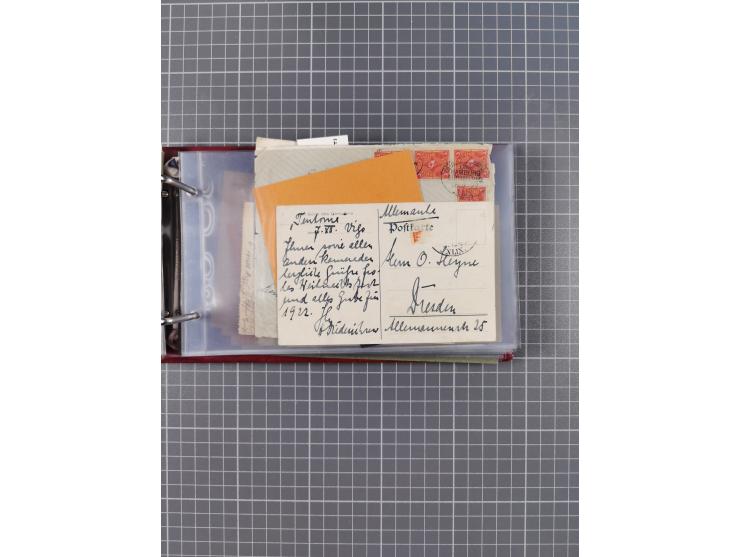 "Teutonia"
7. XII. Vigo
Ihnen sowie allen
anden Kameraden
herzliche Grüße fro-
hes Weihnachtsfest
und alles Gute für
1922.
Allemanha
Postkarte
Herrn O. Heyne
Dresden
Allemannenstr 25